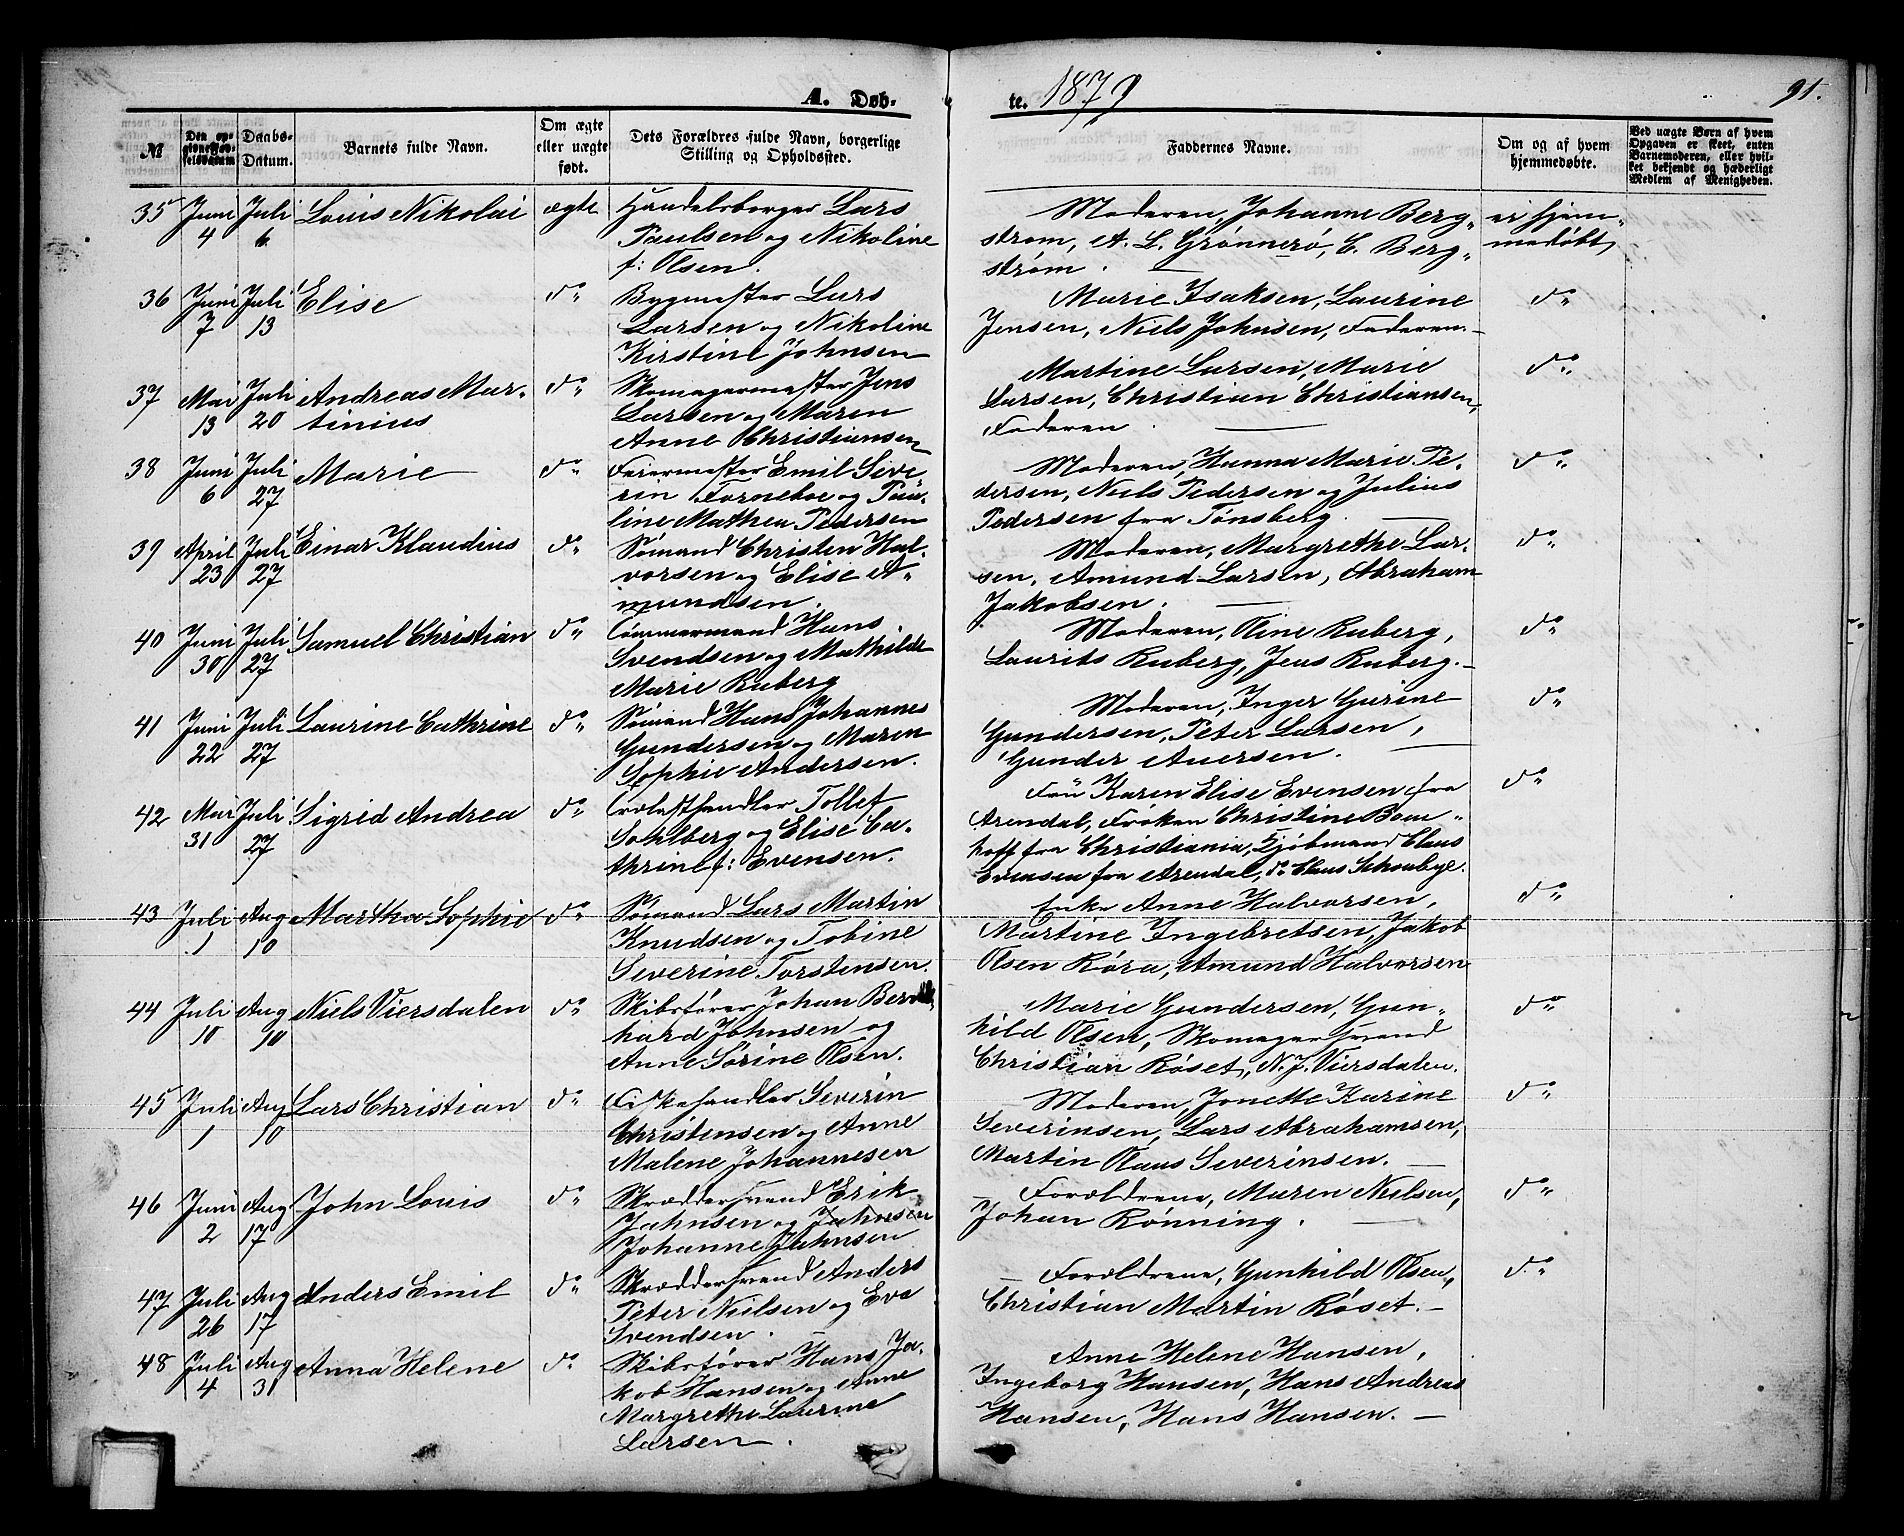 A. Døb-
te. 1879
91.
№
Den opgivne Fødselsdatum
Daabs-Datum.
Barnets fulde Navn.
Om ægte eller uægte født.
Dets Forældres fulde Navn, borgerlige Stilling og Opholdssted.
Faddernes Navne.
Om og af hvem hjemmedøbte.
Ved uægte Børn af hvem Opgaven er skeet, enten Barnemoderen, eller hvilket bekjendt og hæderligt Medlem af Menigheden.
35 Juni 4 Juli 6 Louis Nikolai ægte Handelsborger Lars
Paulsen og Nikoline
f: Olsen.
Moderen, Johanne Berg-
strøm, A. L. Grønnerø, C. Berg-
strøm.
ei hjem-
medøbt
36 Juni 7 Juli 13 Elise do Bygmester Lars
Larsen og Nikoline
Kirstine Johnsen
Marie Isaksen, Laurine
Jensen, Niels Johnsen, Faderen.
do
37 Mai 13 Juli 20 Andreas Mar-
tinius do Skomagermester Jens
Larsen og Maren
Anne Christiansen
Martine Larsen, Marie
Larsen, Christian Christiansen,
Faderen.
do
38 Juni 6 Juli 27 Marie do Feiermester Emil Seve-
rin Forneboe og Pau-
line Mathea Pedersen
Moderen, Hanna Marie Pe-
dersen, Niels Pedersen og Julius
Pedersen fra Tønsberg.
do
39 April 23 Juli 27 Einar Klaudius do Sømand Christen Hal-
vorsen og Elise A-
mundsen.
Moderen, Margrethe Lar-
sen, Amund Larsen, Abraham
Jakobsen.
do
40 Juni 30 Juli 27 Samuel Christian do Tømmermand Hans
Svendsen og Mathilde
Marie Ruberg
Moderen, Oline Ruberg,
Laurits Ruberg, Jens Ruberg.
do
41 Juni 22 Juli 27 Laurine Cathrine do Sømand Hans Johannes
Gundersen og Maren
Sophie Andersen.
Moderen, Inger Gurine
Gundersen, Peter Larsen,
Gunder Auersen.
do
42 Mai 31 Juli 27 Sigrid Andrea do Trælasthandler Tollef
Sohlberg og Elise Ca-
thrine f: Evensen.
Fru Karen Elise Evensen fra
Arendal, Frøken Christine Bom-
hoff fra Christiania, Kjøbmand Claus
Evensen fra Arendal, do Claus Schoubye.
do
43 Juli 1 Aug 10 Martha Sophie do Sømand Lars Martin
Knudsen og Tobine
Severine Torstensen.
Enke Anne Halvorsen,
Martine Ingebretsen, Jakob
Olsen Røra, Amund Halvorsen
do
44 Juli 10 Aug 10 Niels Viersdalen do Skibsfører Johan Bern-
hard Johnsen og
Anne Sørine Olsen.
Marie Gundersen, Gun-
hild Olsen, Skomagersvend
Christian Røset, N. J. Viersdalen.
do
45 Juli 1 Aug 10 Lars Christian do Fiskehandler Severin
Christensen og Anne
Malene Johannesen
Moderen, Jonette Karine
Severinsen, Lars Abrahamsen,
Martin Claus Severinsen.
do
46 Juni 2 Aug 17 John Louis do Skræddersvend Erik
Jahnsen og Jahnsen
Johanne Jahnsen
Forældrene, Maren Nielsen,
Johan Rønning.
do
47 Juli 26 Aug 17 Anders Emil do Skræddersvend Anders
Peter Nielsen og Eva
Svendsen.
Forældrene, Gunhild Olsen,
Christian Martin Røset.
do
48 Juli 4 Aug 31 Anna Helene do Skibsfører Hans Ja-
kob Hansen og Anne
Margrethe Laurine
Larsen.
Anne Helene Hansen,
Ingeborg Hansen, Hans Andreas
Hansen, Hans Hansen.